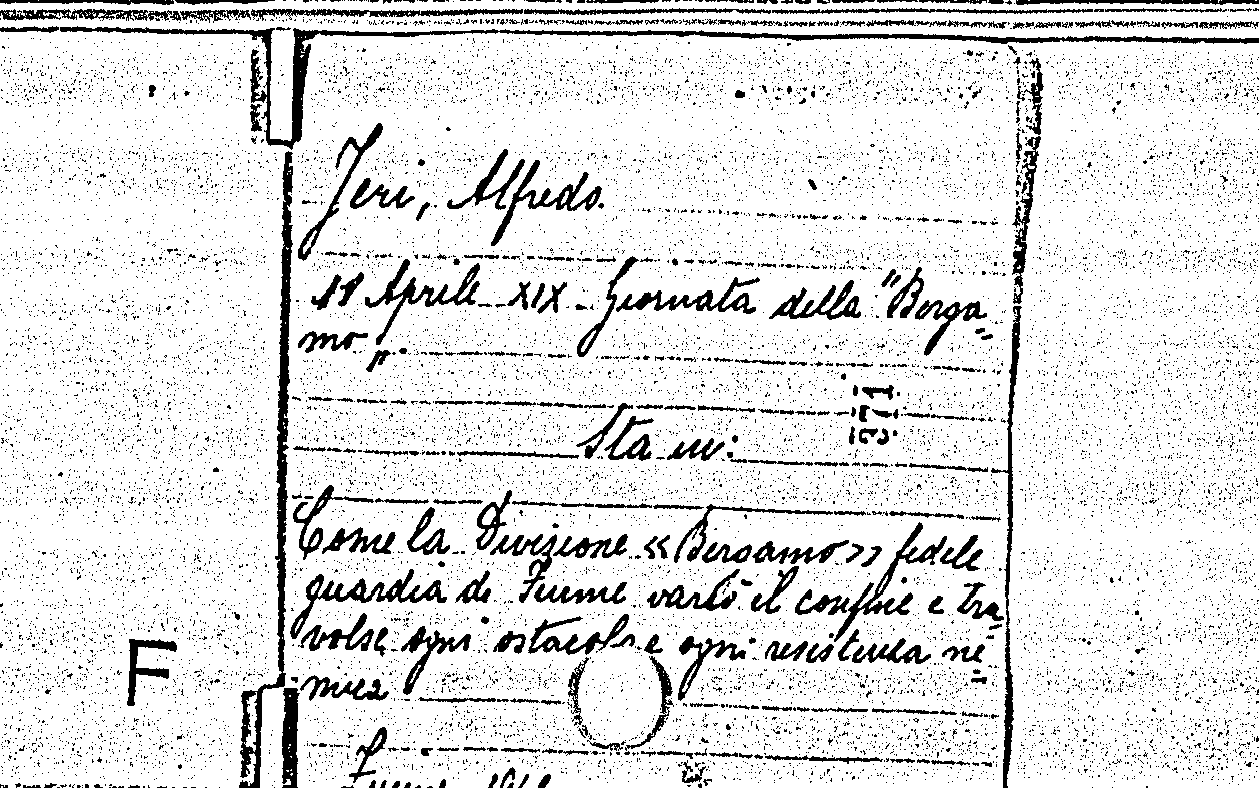 Jeri, Alfredo.
18 Aprile XIX - Giornata della "Berga=
mo„.
371
Sta in:
Come la Divizione «Bergamo» fedele
guardia di Fiume varcò il confine e tra=
volse ogni ostacolo e ogni resistenza ne=
mica
F
Fiume 1941